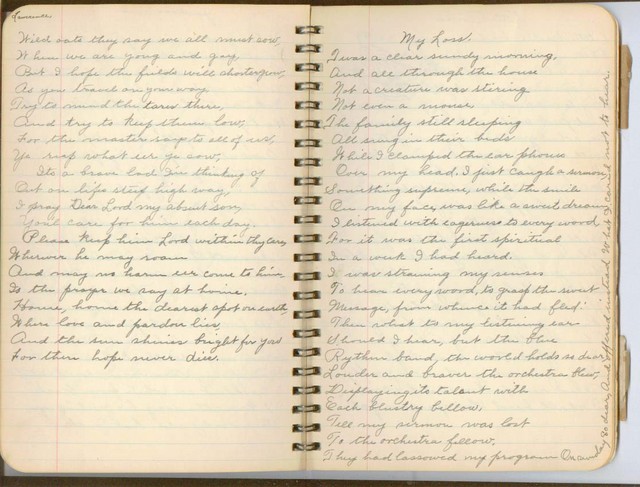 Lawrence
Wild oats they say we all must sow,
When we are young and gay.
But I hope the fields will shorter grow,
As you travel on your way.
Try to mind the tares there,
And try to keep them low,
For the master says to all of us,
Ye reap what ere ye sow,
Its a brave lad I'm thinking of
Out on lifes steep high way,
I pray Dear Lord my absent son,
Youll care for him each day.
Please keep him Lord within thy care,
Wherever he may roam
And may no harm ere come to him
Is the prayer we say at home.
Home, home the dearest spot on earth,
Where love and pardon lies,
And the sun shines bright for you
For there hope never dies.
My Loss.
Twas a clear sunday morning,
And all through the house
Not a creature was stiring
Not even a mouse
The family still sleeping
All snug in their beds
While I clamped the ear phones
Over my head. I just caught a sermon,
Something supreme, while the smile
On my face, was like a sweet dream
I listened with eagerness to every word
For it was the first spiritual
In a week I had heard.
I was straining my senses
To hear every word, to grasp the sweet
Message, from whence it had fled.
Then what to my listening ear
Should I hear, but the blue
Rythem band, the world holds so dear,
Louder and braver the orchestra blew,
Displaying its talent with
Each blustry bellow,
Till my sermon was lost
To the orchestra fellow.
They had lassowed my program On sunday so dear, And offered instead to hear.